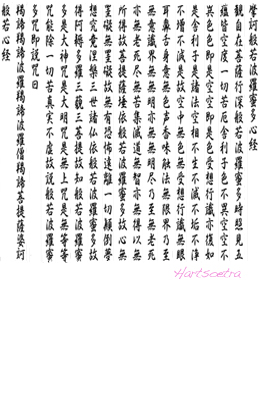 摩訶般若波羅蜜多心経
観自在菩薩行深般若波羅蜜多時照見五
蘊皆空度一切苦厄舎利子色不異空空不
異色色即是空空即是色受想行識亦復如
是舎利子是諸法空相不生不滅不垢不浄
不増不減是故空中無色無受想行識無眼
耳鼻舌身意無色声香味触法無眼界乃至
無意識界無無明亦無無明尽乃至無老死
亦無老死尽無苦集滅道無智亦無得以無
所得故菩提薩埵依般若波羅蜜多故心無
罣礙無罣礙故無有恐怖遠離一切顛倒夢
想究竟涅槃三世諸仏依般若波羅蜜多故
得阿耨多羅三藐三菩提故知般若波羅蜜
多是大神咒是大明咒是無上咒是無等等
咒能除一切苦真実不虚故説般若波羅蜜
多咒即説咒曰
羯諦羯諦波羅羯諦波羅僧羯諦菩提薩婆訶
般若心経
Hartscetra